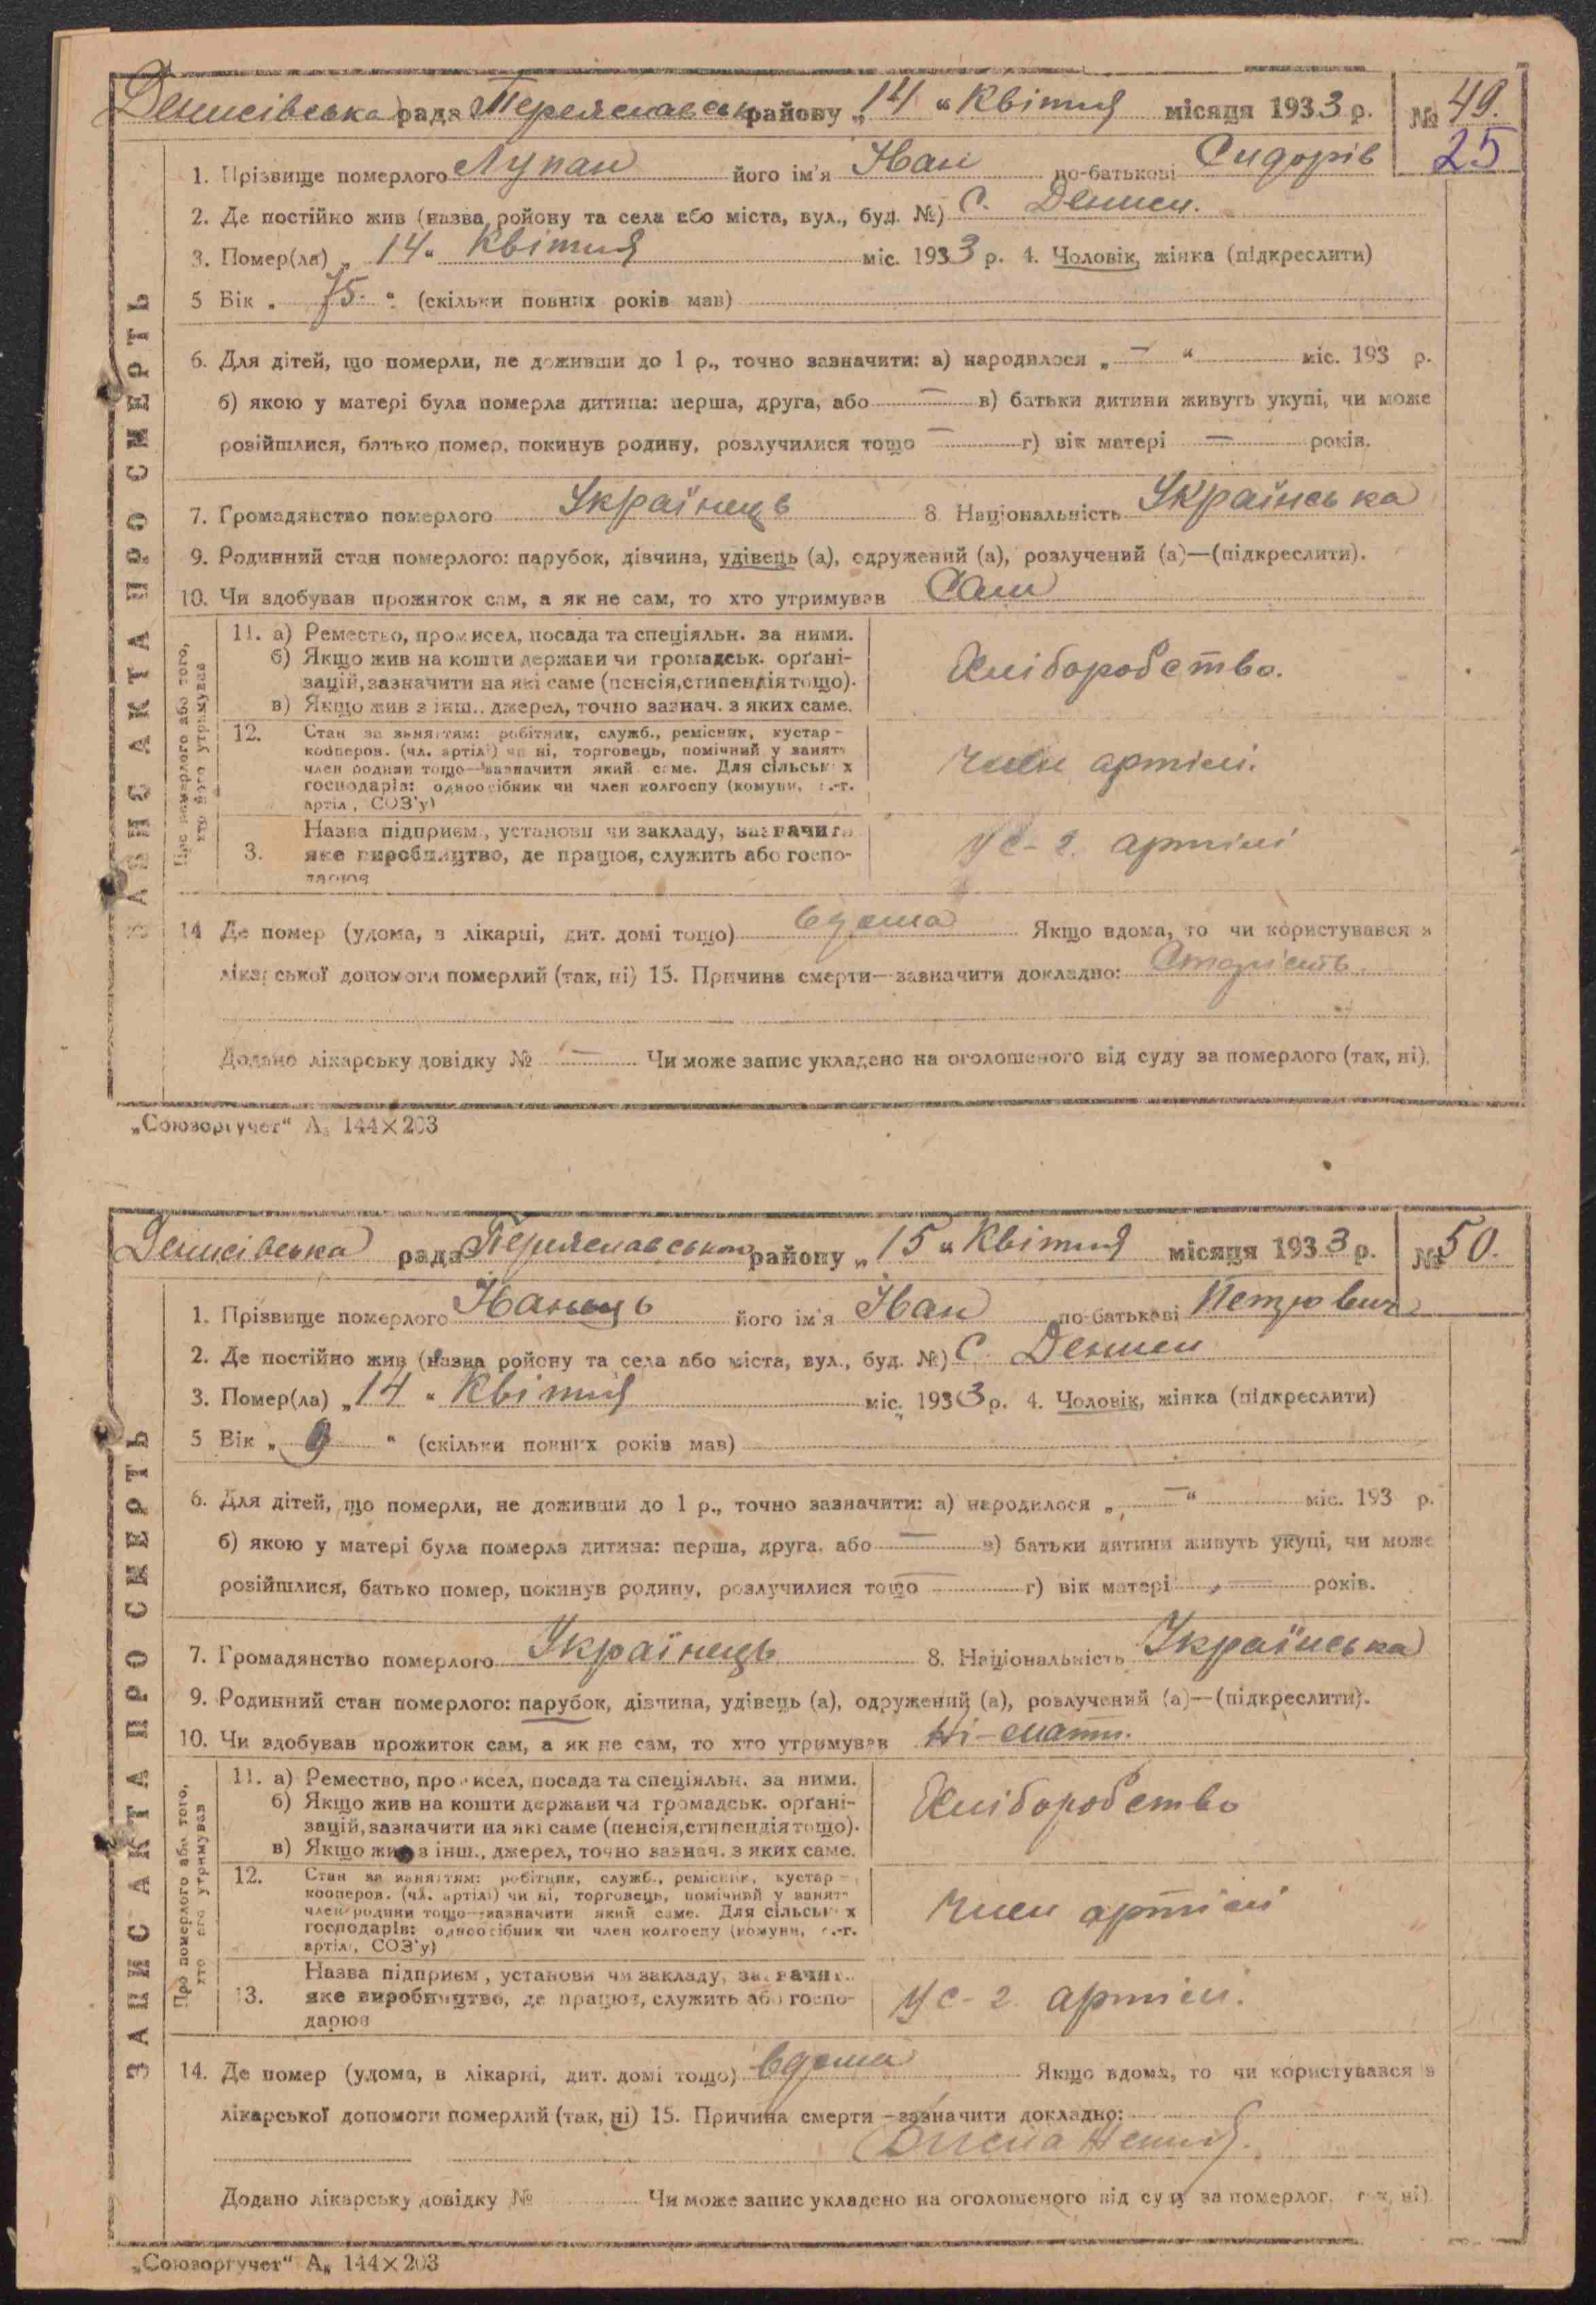 Денисівська рада Переяславськ району „14“ Квітня місяця 1933 р. № 49.
25
ЗАПИС АКТА ПРО СМЕРТЬ
1. Прізвище померлого Лупан його ім'я Іван по-батькові Сидорів
2. Де постійно жив (назва ройону та села або міста, вул., буд. №) С. Дениси.
3. Помер(ла) „14“ Квітня міс. 1933 р. 4. Чоловік, жінка (підкреслити)
5 Вік „75.“ (скільки повних років мав)
6. Для дітей, що померли, не доживши до 1 р., точно зазначити: а) народилося „—“ міс. 193 р.
б) якою у матері була померла дитина: перша, друга, або — в) батьки дитини живуть укупі, чи може
розійшлися, батько помер, покинув родину, розлучилися тощо — г) вік матері — років.
7. Громадянство померлого Українець 8. Національність Українська
9. Родинний стан померлого: парубок, дівчина, удівець (а), одружений (а), розлучений (а)—(підкреслити).
10. Чи здобував прожиток сам, а як не сам, то хто утримував Сам
Про померлого або того, хто його утримував
11. а) Ремество, промисел, посада та спеціяльн. за ними.
б) Якщо жив на кошти держави чи громадськ. орґані-
зацій, зазначити на які саме (пенсія, стипендія тощо).
в) Якщо жив з інш., джерел, точно зазнач. з яких саме.
Хліборобство.
12. Стан за заняттям: робітник, служб., ремісник, кустар-
кооперов. (чл. артілі) чи ні, торговець, помічний у занятт
член родини тощо—зазначити який саме. Для сільськ х
господарів: одноосібник чи член колгоспу (комуни, с.-г.
артіл, СОЗ'у)
Член артілі.
3. Назва підприєм, установи чи закладу, зазначити
яке виробництво, де працює, служить або госпо-
дарює
У с-г. артілі
14 Де помер (удома, в лікарні, дит. домі тощо) вдома Якщо вдома, то чи користувався з
лікарської допомоги померлий (так, ні) 15. Причина смерти—зазначити докладно: Старість.
Додано лікарську довідку № — Чи може запис укладено на оголошеного від суду за померлого (так, ні).
„Союзоргучет“ А₅ 144×203
Денисівська рада Переяславського району „15“ Квітня місяця 1933 р. № 50.
ЗАПИС АКТА ПРО СМЕРТЬ
1. Прізвище померлого його ім'я Іван по-батькові Петрович
2. Де постійно жив (назва ройону та села або міста, вул., буд. №) С. Дениси
3. Помер(ла) „14“ Квітня міс. 1933 р. 4. Чоловік, жінка (підкреслити)
5 Вік „9“ (скільки повних років мав)
6. Для дітей, що померли, не доживши до 1 р., точно зазначити: а) народилося „—“ міс. 193 р.
б) якою у матері була померла дитина: перша, друга, або — в) батьки дитини живуть укупі, чи може
розійшлися, батько помер, покинув родину, розлучилися тощо — г) вік матері — років.
7. Громадянство померлого Українець 8. Національність Українська
9. Родинний стан померлого: парубок, дівчина, удівець (а), одружений (а), розлучений (а)—(підкреслити).
10. Чи здобував прожиток сам, а як не сам, то хто утримував Ні-мати.
Про померлого або того, хто його утримував
11. а) Ремество, промисел, посада та спеціяльн. за ними.
б) Якщо жив на кошти держави чи громадськ. орґані-
зацій, зазначити на які саме (пенсія, стипендія тощо).
в) Якщо жив з інш., джерел, точно зазнач. з яких саме.
Хліборобство
12. Стан за заняттям: робітник, служб., ремісник, кустар-
кооперов. (чл. артілі) чи ні, торговець, помічний у занятт
член родини тощо—зазначити який саме. Для сільськ х
господарів: одноосібник чи член колгоспу (комуни, с.-г.
артілі, СОЗ'у)
Член артілі
13. Назва підприєм, установи чи закладу, зазначит
яке виробництво, де працює, служить або госпо-
дарює
У с-г. артілі.
14. Де помер (удома, в лікарні, дит. домі тощо) вдома Якщо вдома, то чи користувався з
лікарської допомоги померлий (так, ні) 15. Причина смерти—зазначити докладно:
Додано лікарську довідку № Чи може запис укладено на оголошеного від суду за померлог. так, ні).
„Союзоргучет“ А₅ 144×203